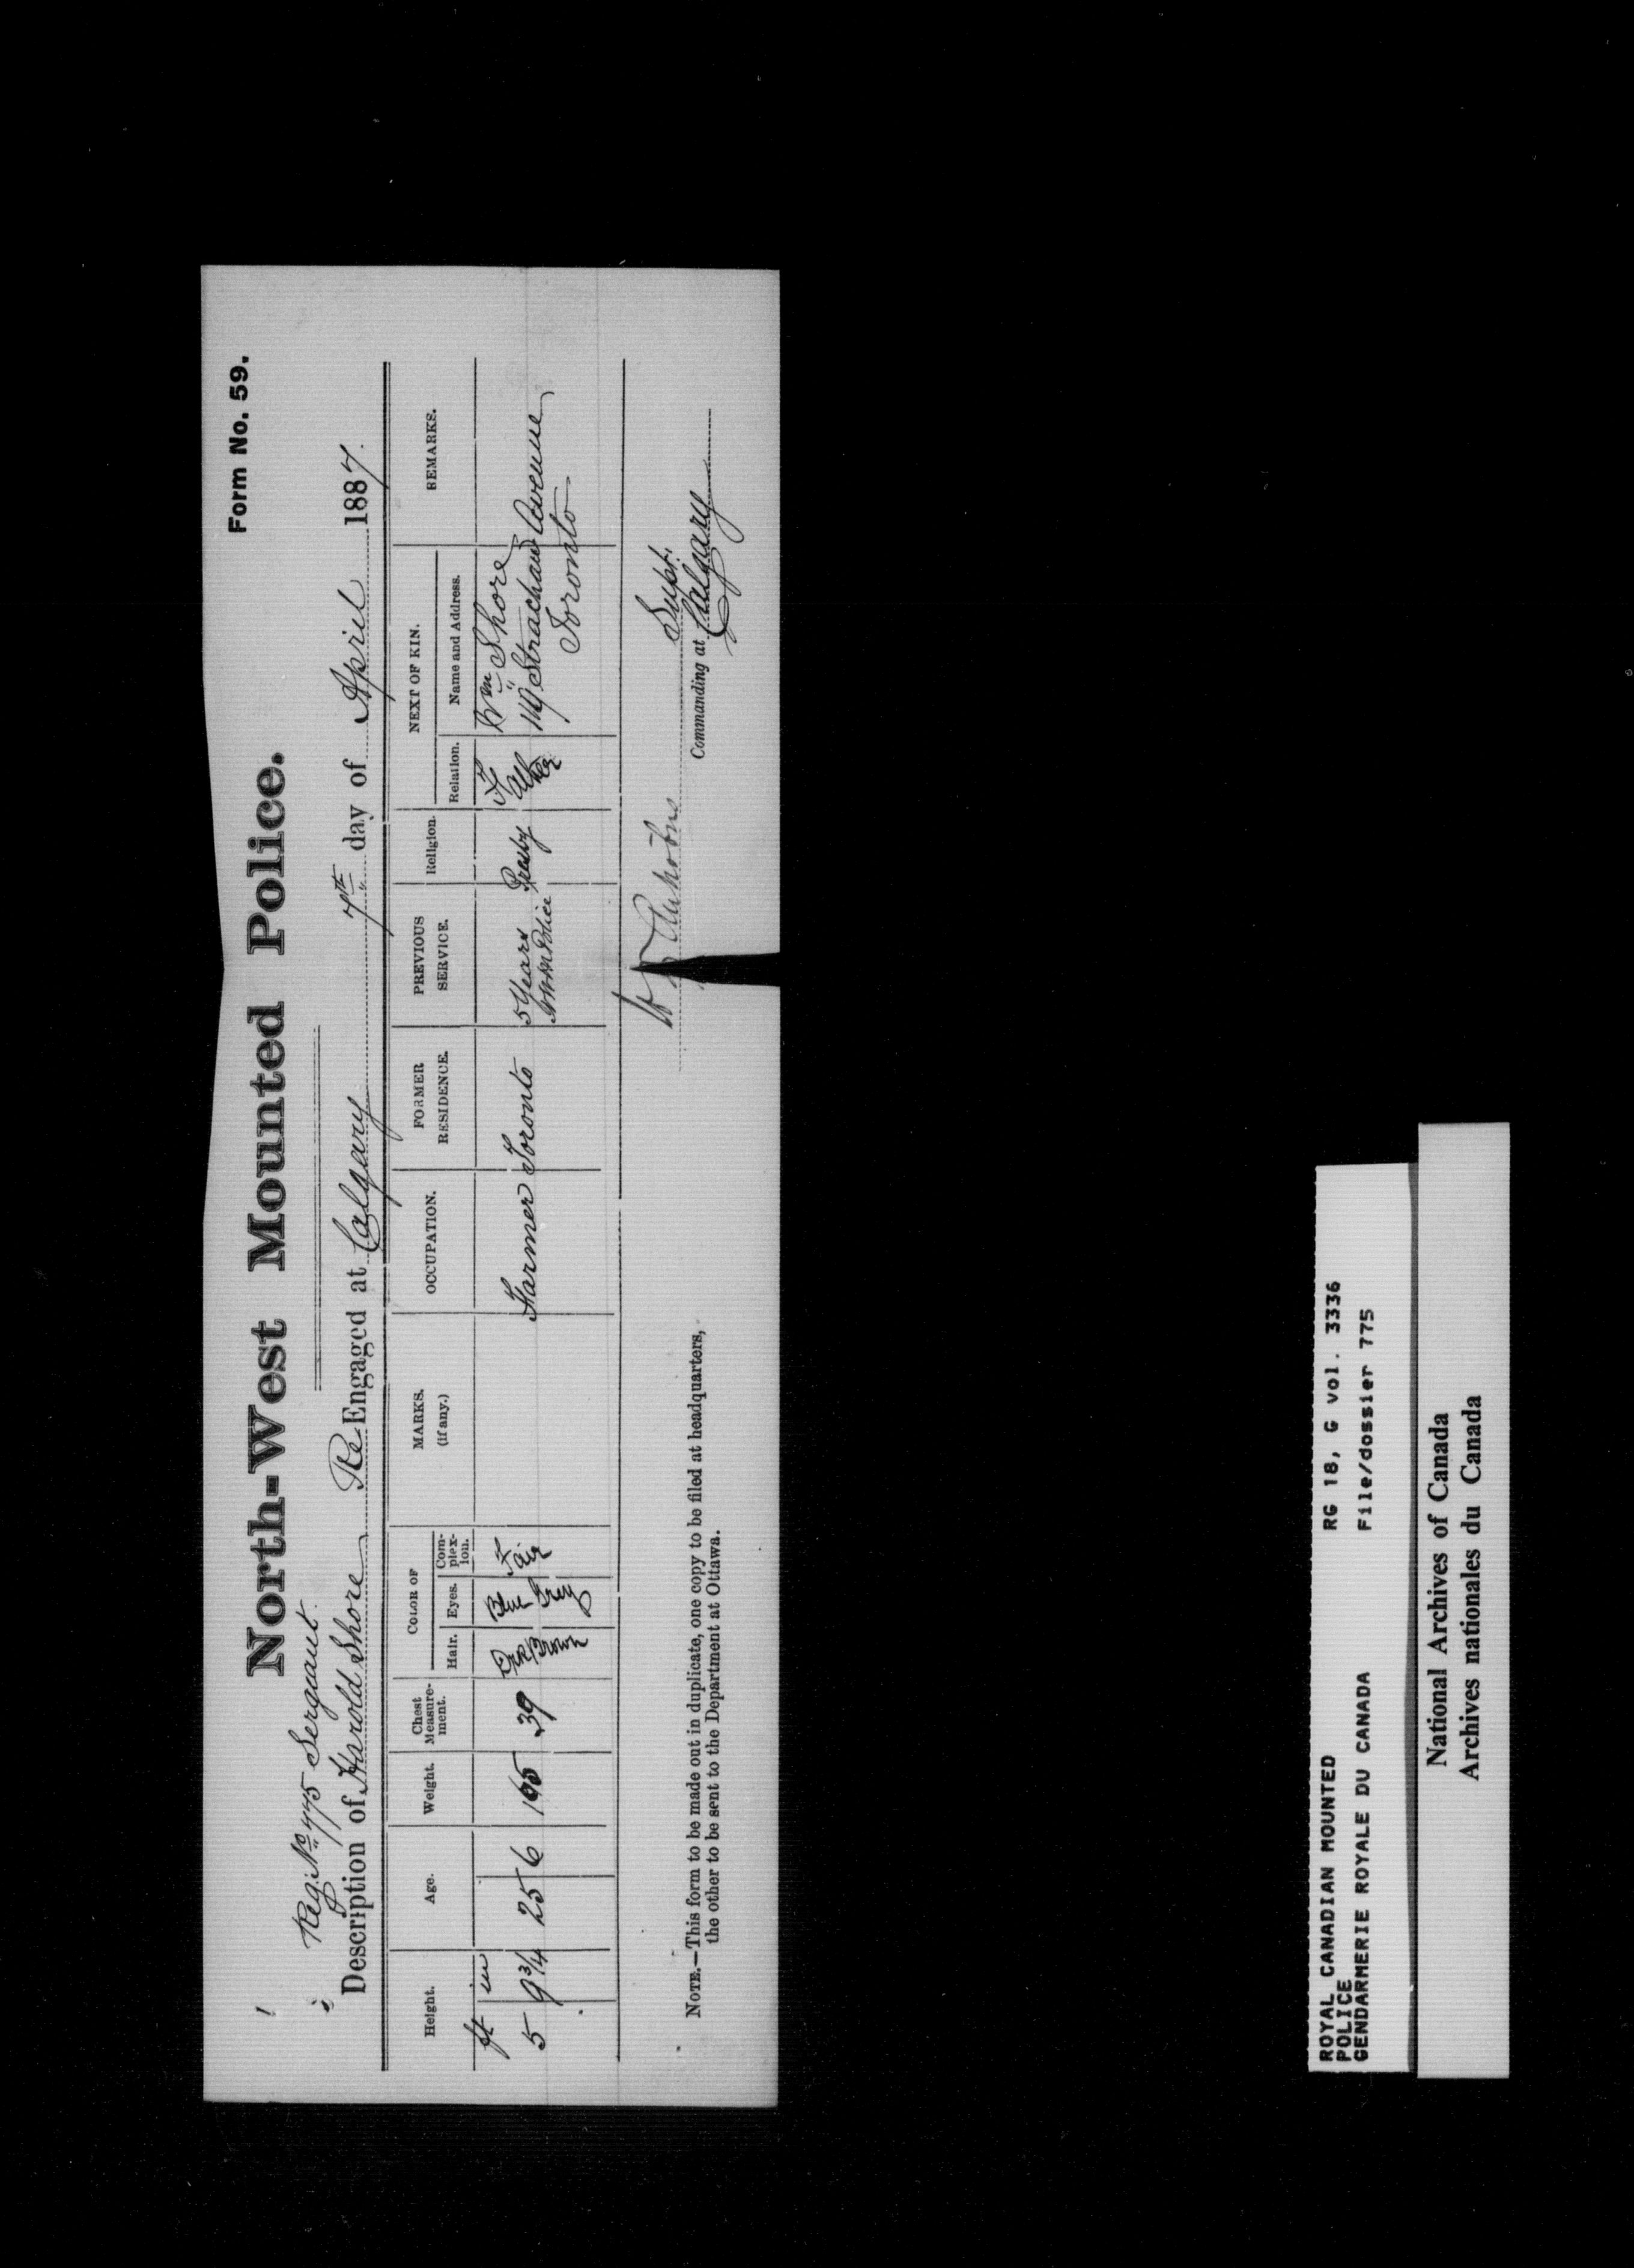 Form No. 59.
North-West Mounted Police.
Reg. No. 775 Sergeant.
Description of Harold Shore Re Engaged at Calgary 7th day of April 1887.
Height. Age. Weight. Chest Measure-ment. COLOR OF Hair. Eyes. Com-plex-ion. MARKS. (if any.) OCCUPATION. FORMER RESIDENCE. PREVIOUS SERVICE. Religion. NEXT OF KIN. Relation. Name and Address. REMARKS.
ft in
5 9 3/4 25 6 39 Brown Blue Grey Fair Farmer Toronto 5 Years Police Presby Father Wm Shore
Strachan Avenue
Toronto
Supt.
Commanding at Calgary
NOTE.—This form to be made out in duplicate, one copy to be filed at headquarters,
the other to be sent to the Department at Ottawa.
ROYAL CANADIAN MOUNTED RG 18, G vol. 3336
POLICE
GENDARMERIE ROYALE DU CANADA File/dossier 775
National Archives of Canada
Archives nationales du Canada